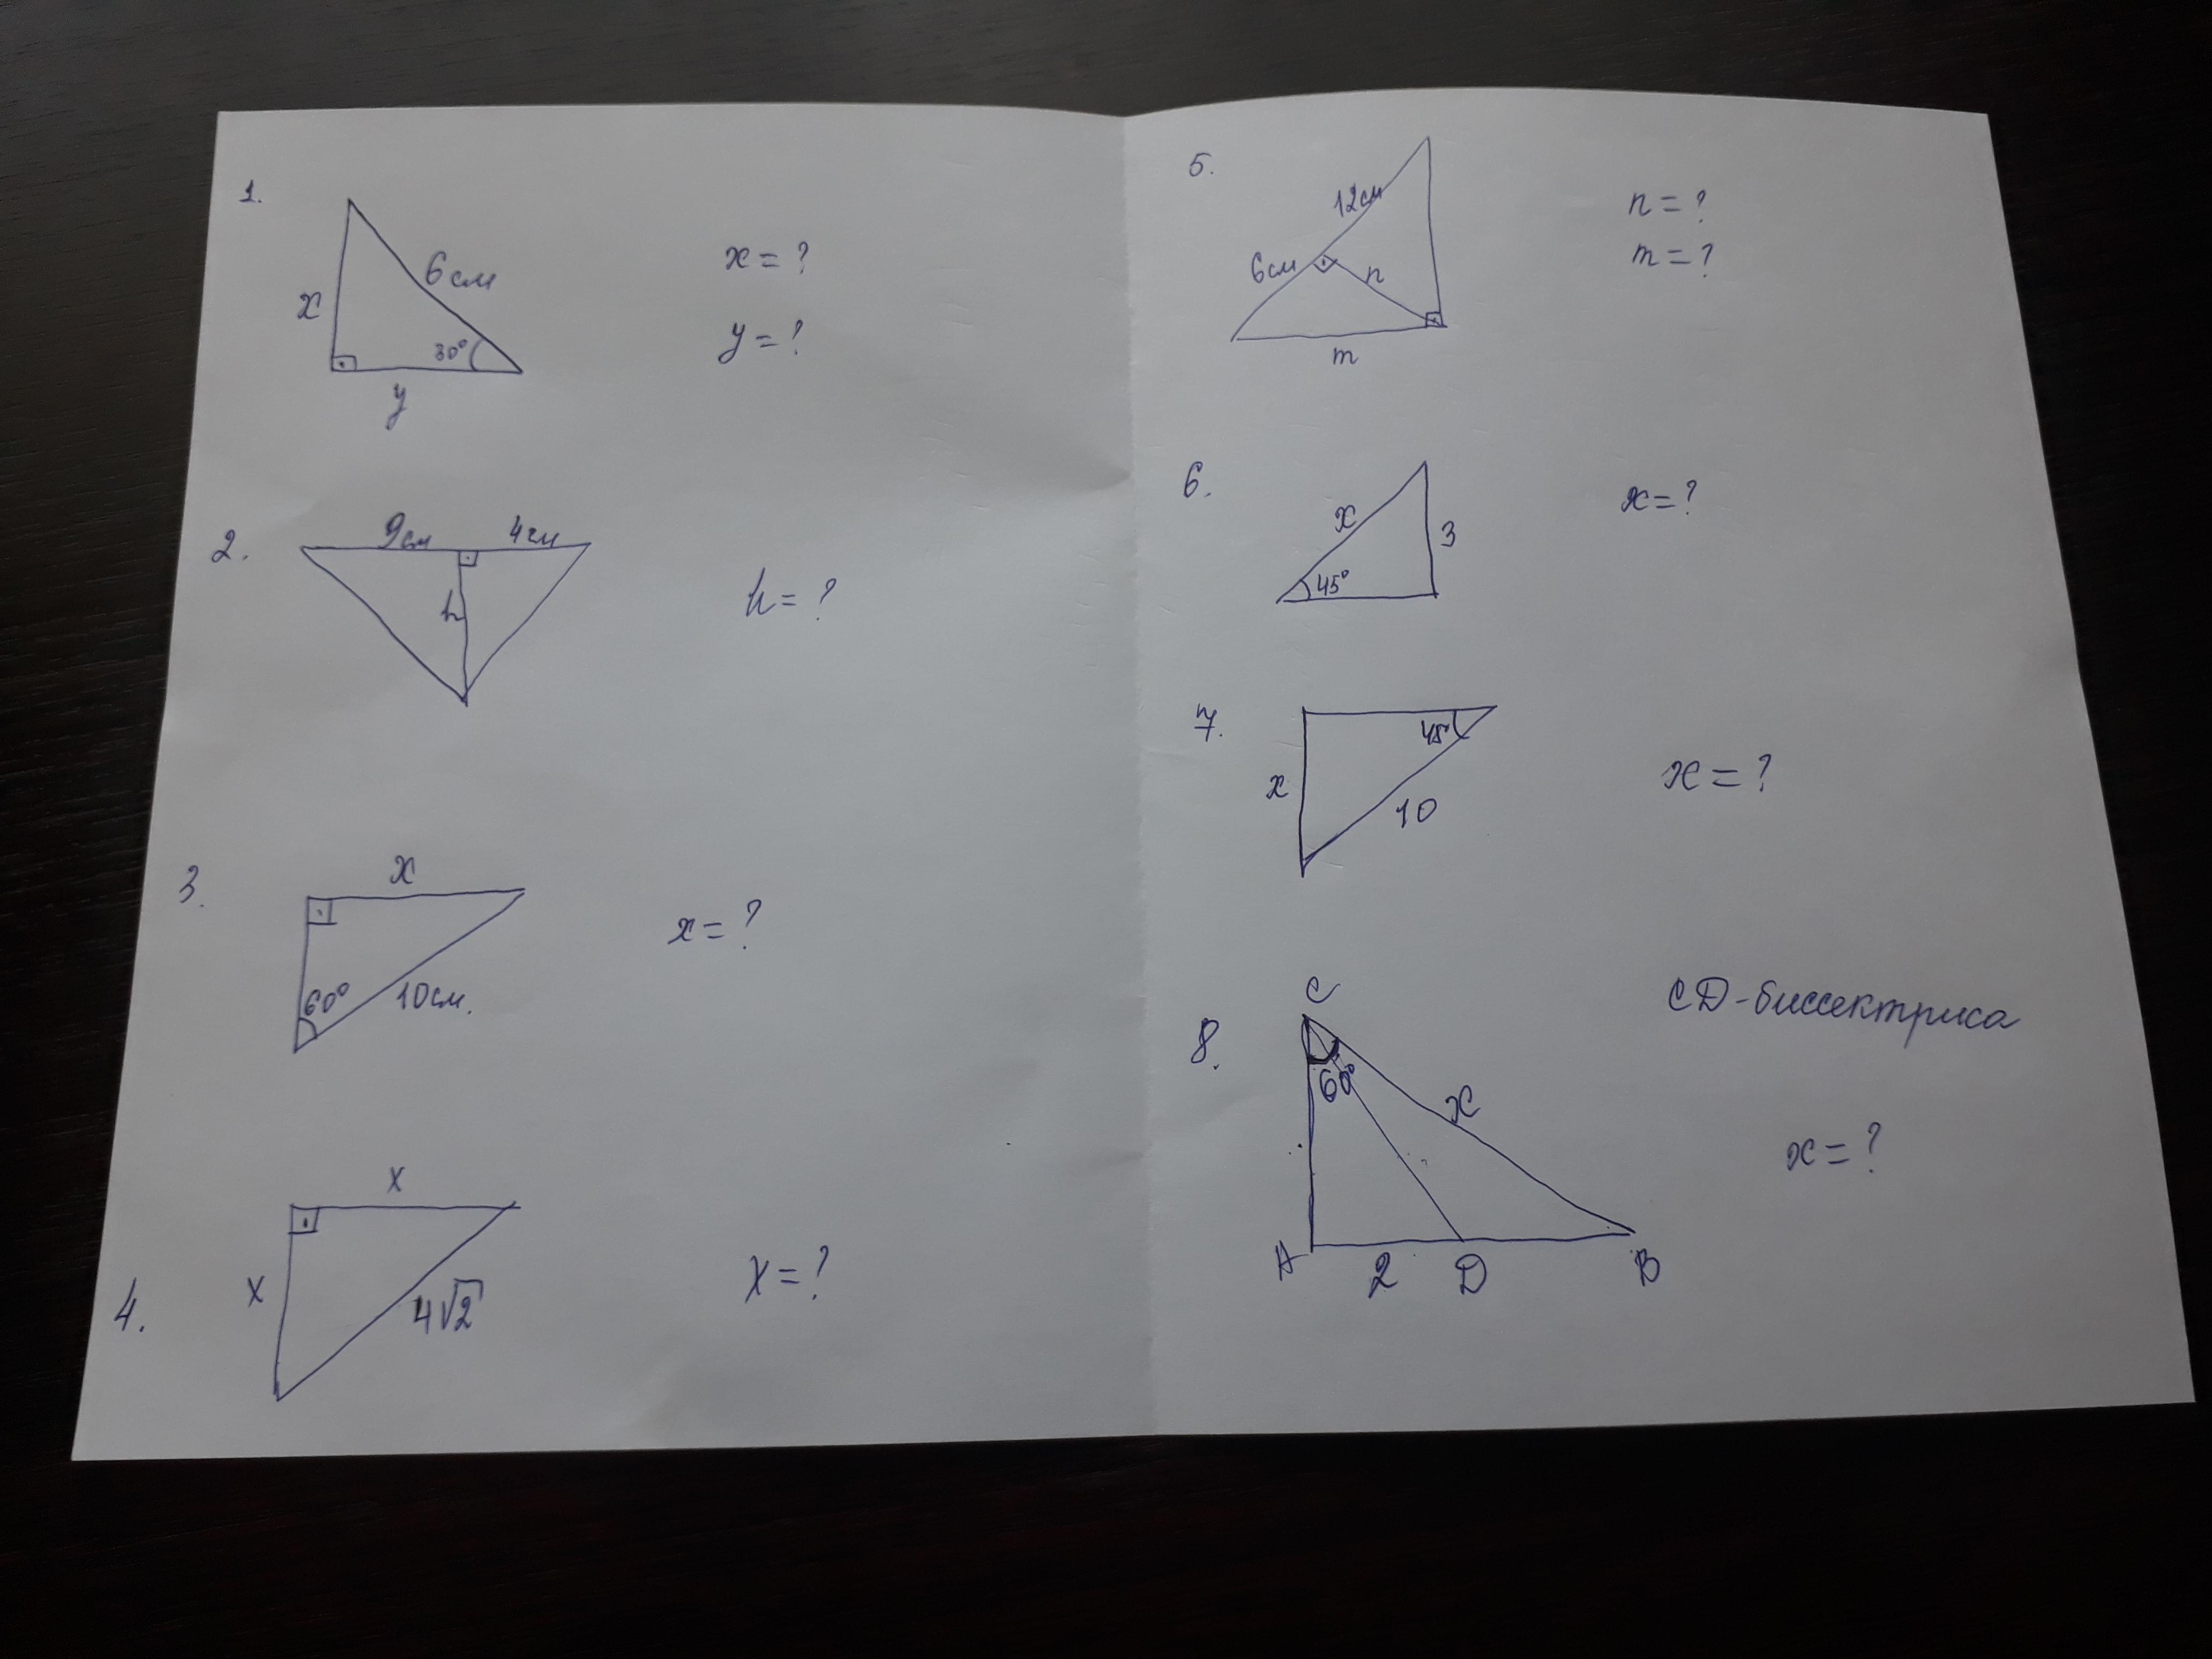 1.
6см
x
30°
y
x = ?
y = ?
2.
9см 4см
h
h = ?
3.
x
60°
10см.
x = ?
4.
x
x
4√2
x = ?
5.
12см
6см
n
m
n = ?
m = ?
6.
x
3
45°
x = ?
7.
45°
x
10
x = ?
8.
C
60°
x
A 2 D B
CD - биссектриса
x = ?